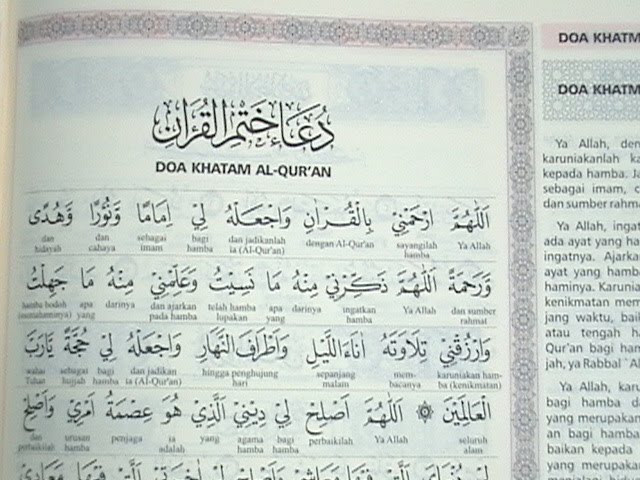 دُعَاءُ خَتْمِ الْقُرْآنِ
DOA KHATAM AL-QUR'AN
اَللّٰهُمَّ ارْحَمْنِيْ بِالْقُرْاٰنِ وَاجْعَلْهُ لِيْ اِمَامًا وَّنُوْرًا وَّهُدًى
Ya Allah sayangilah hamba dengan Al-Qur'an dan jadikanlah ia (Al-Qur'an) bagi hamba sebagai imam dan cahaya dan hidayah
وَّرَحْمَةً اَللّٰهُمَّ ذَكِّرْنِيْ مِنْهُ مَا نَسِيْتُ وَعَلِّمْنِيْ مِنْهُ مَا جَهِلْتُ
dan sumber rahmat Ya Allah ingatkan hamba darinya apa yang telah hamba lupakan dan ajarkan pada hamba darinya apa yang hamba bodoh
وَارْزُقْنِيْ تِلَاوَتَهُ اٰنَاءَ اللَّيْلِ وَاَطْرَافَ النَّهَارِ وَاجْعَلْهُ لِيْ حُجَّةً يَّارَبَّ
karuniakan hamba (kenikmatan) membacanya sepanjang malam hingga penghujung hari dan jadikan ia (Al-Qur'an) bagi hamba sebagai hujjah wahai Tuhan
الْعَالَمِيْنَ اَللّٰهُمَّ اَصْلِحْ لِيْ دِيْنِيَ الَّذِيْ هُوَ عِصْمَةُ اَمْرِيْ وَاَصْلِحْ
seluruh alam Ya Allah perbaikilah bagi hamba agama yang ia adalah penjaga urusan hamba dan perbaikilah
DOA KHATM
DOA KHATM
Ya Allah, den
karuniakanlah ka
kepada hamba. Ja
sebagai imam, c
dan sumber rahma
Ya Allah, ingat
ada ayat yang ha
ingatnya. Ajarkan
ayat yang hamb
haminya. Karunia
kenikmatan mem
jang waktu, baik
atau tengah h
Qur'an bagi ham
jah, ya Rabbal `Al
Ya Allah, karu
bagi hamba da
yang merupakan
an bagi hamba
baikan kepada
yang merupakan